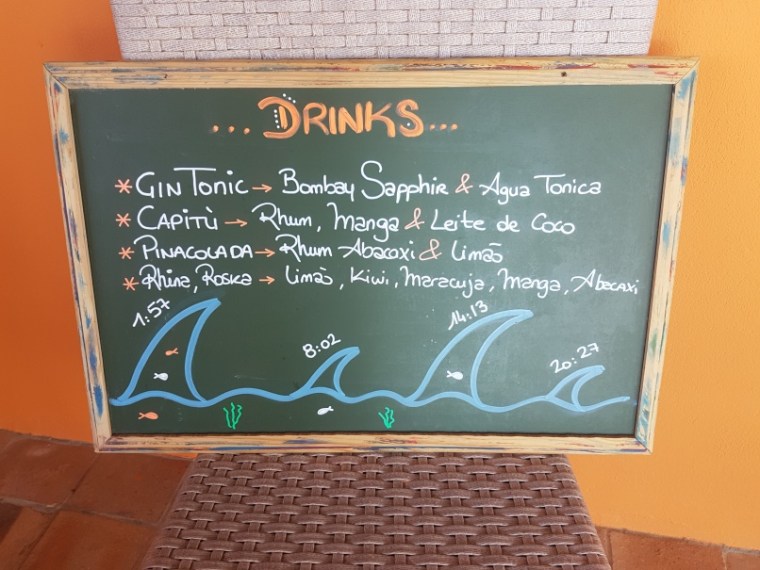 ... DRINKS...
* GIN TONIC → Bombay Sapphir & Agua Tonica
* CAPITÙ → Rhum, Manga & Leite de Coco
* PINACOLADA → Rhum Abacaxi & Limão
* Rhina, Rosica → Limão, Kiwi, Maracuja, Manga, Abacaxi
1:57
8:02
14:13
20:27